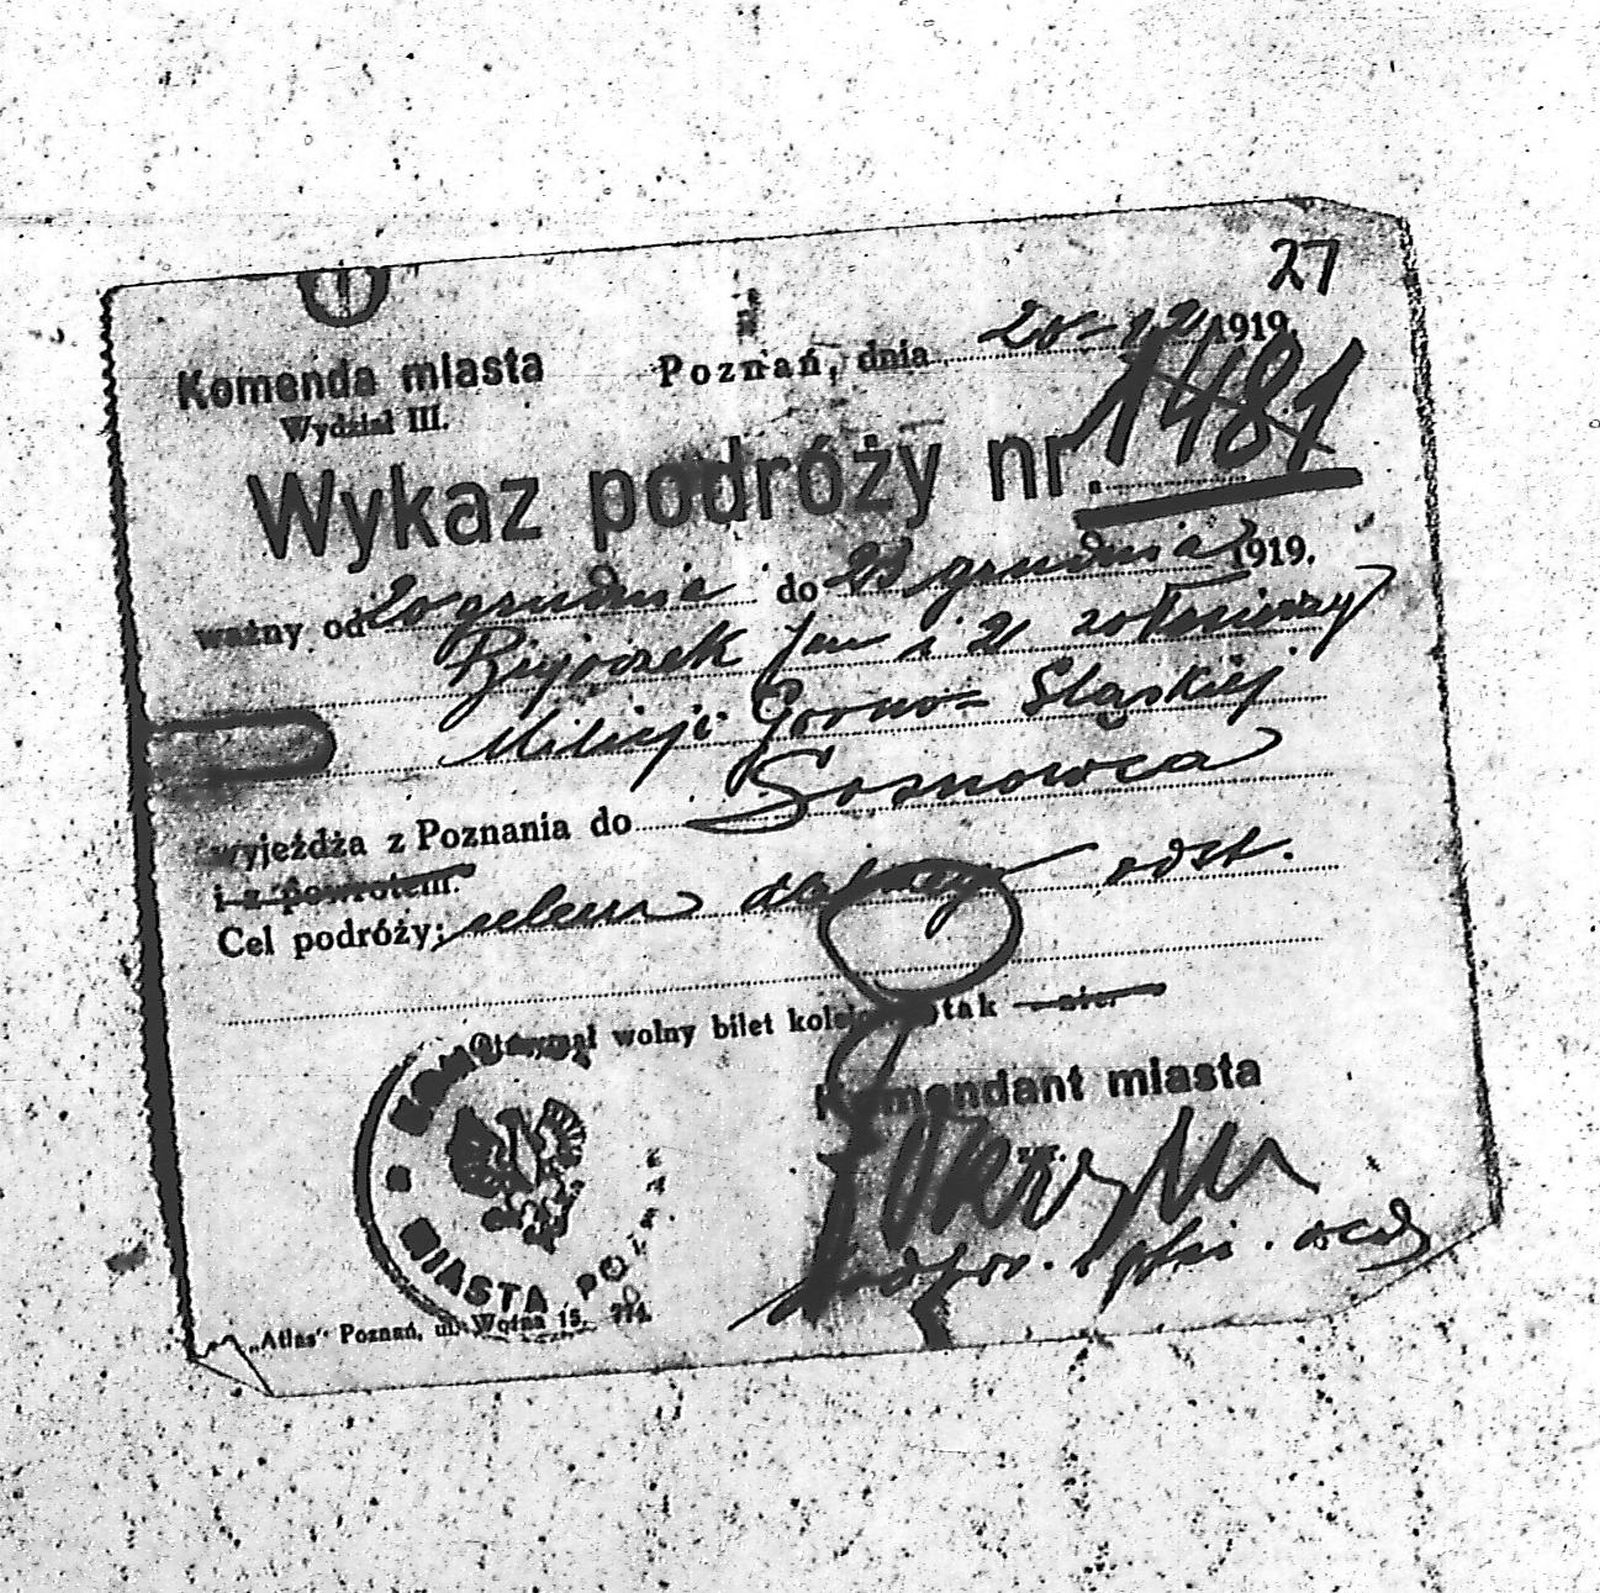 27
Komenda miasta Poznań, dnia 20-12 1919.
Wydział III.
Wykaz podróży nr. 1481
ważny od 20 grudnia do 23 grudnia 1919.
Jan i 2 żołnierzy
Milicji Górno-Sląskiej
wyjeżdża z Poznania do Sosnowca
i z powrotem.
Cel podróży: celem dalszej odst.
Otrzymał wolny bilet kolejowy tak - nie.
Komendant miasta
MIASTA POZNANIA
„Atlas" Poznań, ul. Wodna 15. 774.